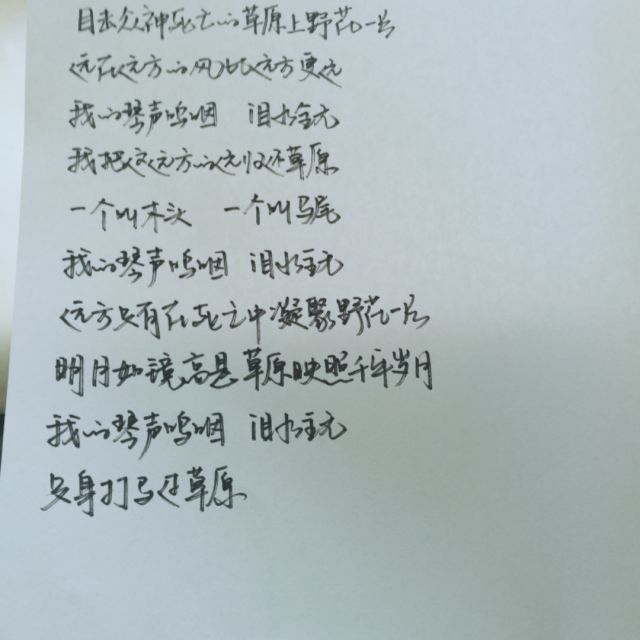 目击众神死亡的草原上野花一片
远在远方的风比远方更远
我的琴声呜咽 泪水全无
我把这远方的远归还草原
一个叫木头 一个叫马尾
我的琴声呜咽 泪水全无
远方只有在死亡中凝聚野花一片
明月如镜高悬草原映照千年岁月
我的琴声呜咽 泪水全无
只身打马过草原